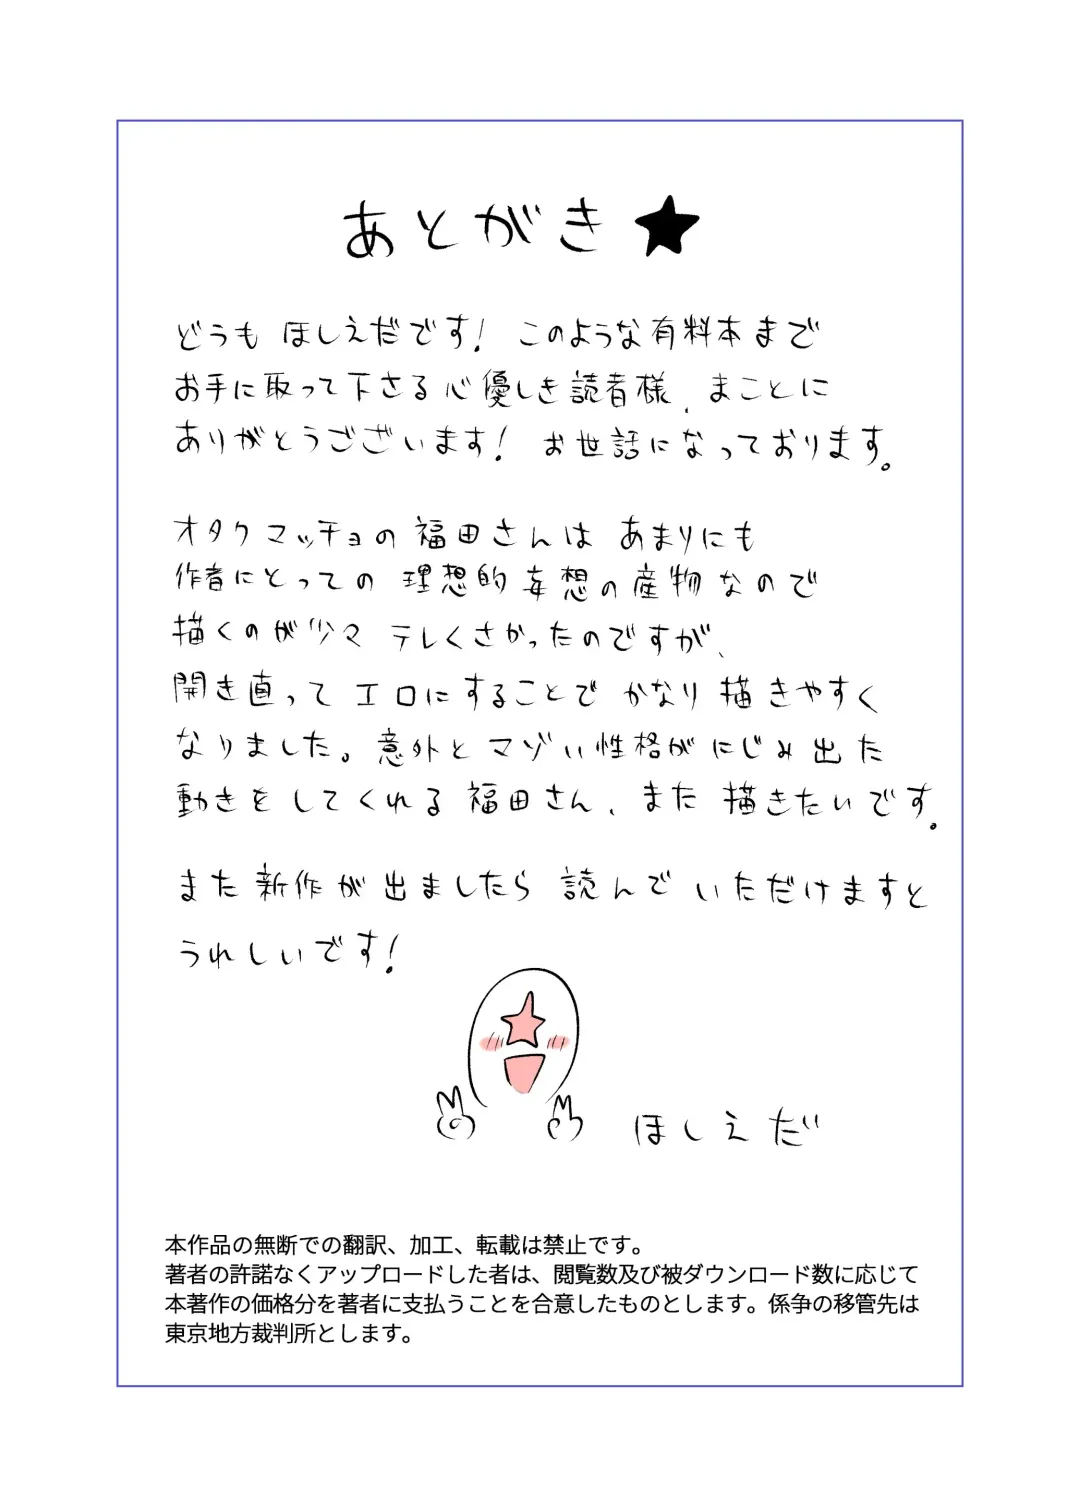 あとがき★
どうも ほしえだです! このような有料本まで
お手に取って下さる心優しき読者様、まことに
ありがとうございます! お世話になっております。
オタクマッチョの福田さんは あまりにも
作者にとっての 理想的妄想の産物なので
描くのが少々 テレくさかったのですが、
開き直って エロにすることで かなり描きやすく
なりました。意外とマゾい性格がにじみ出た
動きをしてくれる福田さん、また描きたいです。
また新作が出ましたら 読んでいただけますと
うれしいです!
ほしえだ
本作品の無断での翻訳、加工、転載は禁止です。
著者の許諾なくアップロードした者は、閲覧数及び被ダウンロード数に応じて
本著作の価格分を著者に支払うことを合意したものとします。係争の移管先は
東京地方裁判所とします。